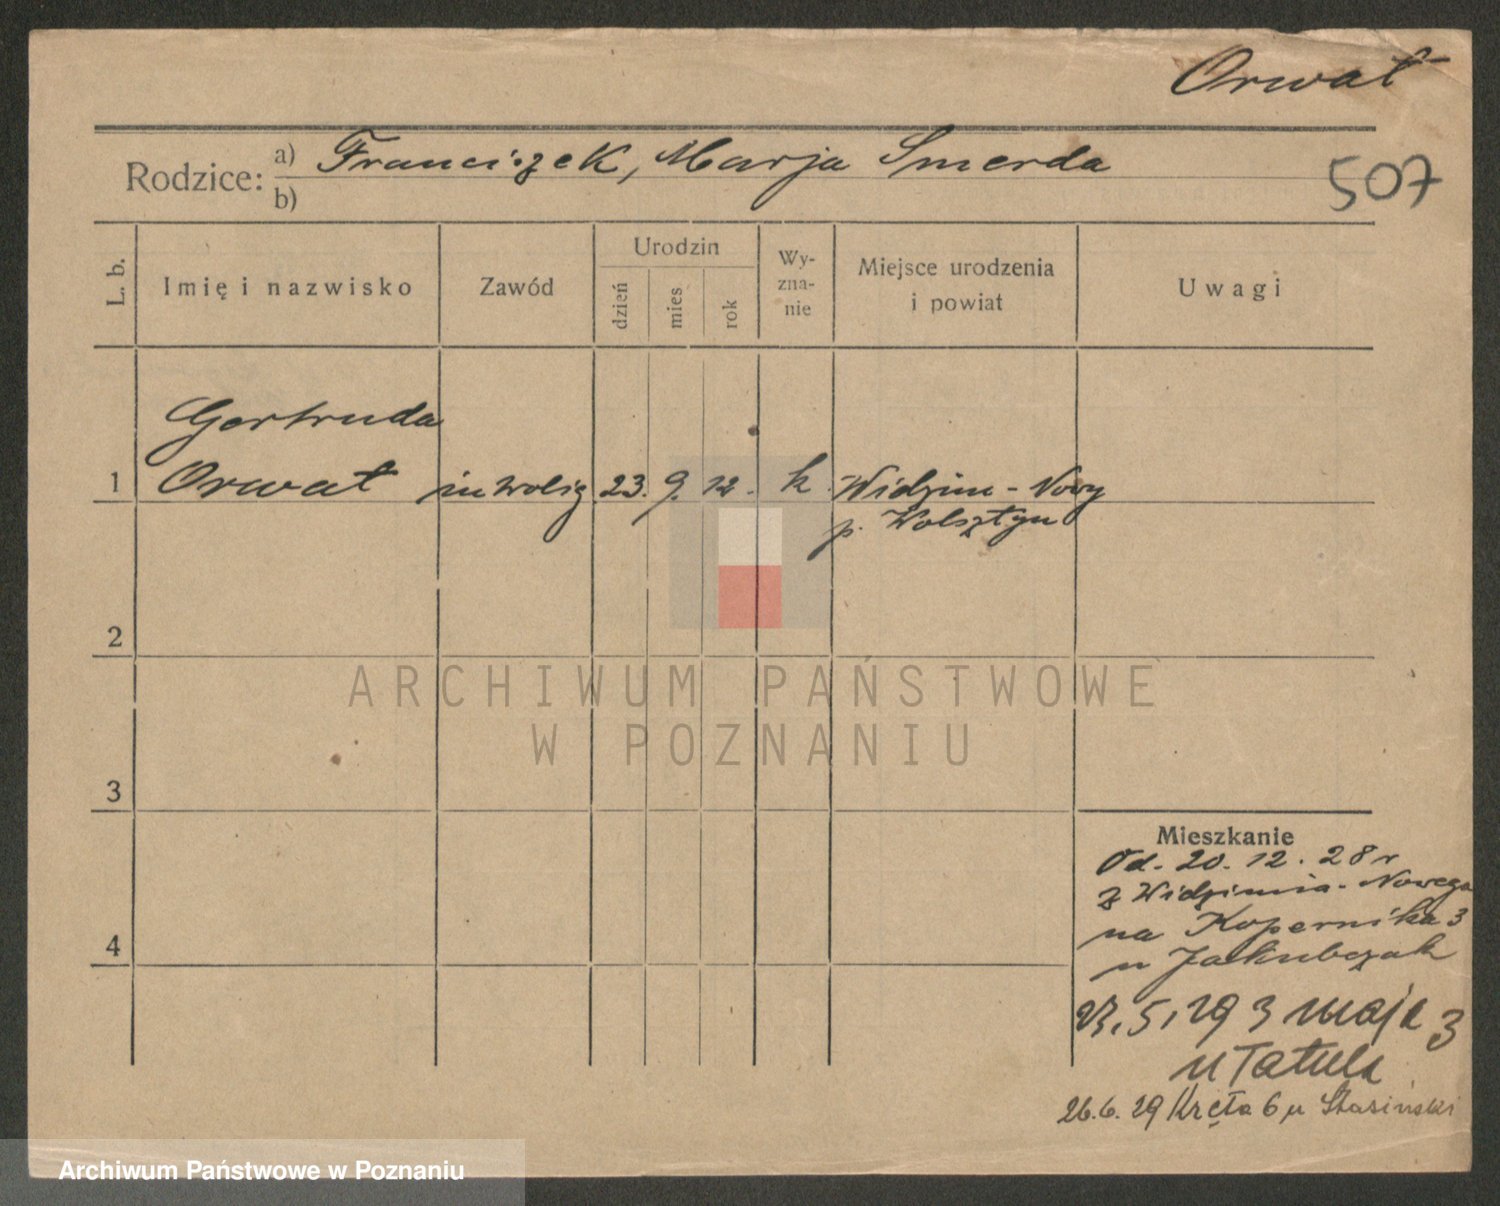 Orwat
Rodzice: a) Franciszek, Marja Smerda
b)
507
L. b. Imię i nazwisko Zawód Urodzin dzień mies rok Wy-zna-nie Miejsce urodzenia i powiat Uwagi
Gertruda
1 Orwat 23. 9. 12. k Widzim - Nowy
p. Wolsztyn
2
3
4
Mieszkanie
Od. 20. 12. 28 r
z Widzimia - Nowego
na Kopernika 3
u Jakubczak
23. 5. 29 3 maja 3
u Tatula
26. 6. 29 Kręta 6 u Stasiński
ARCHIWUM PAŃSTWOWE
W POZNANIU
Archiwum Państwowe w Poznaniu